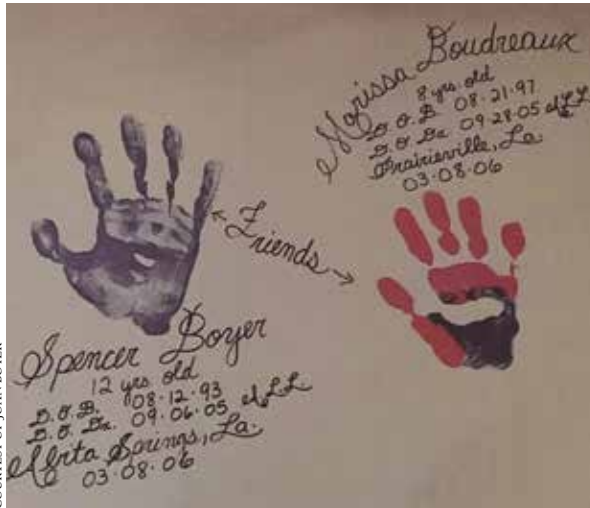 Marissa Boudreaux
8 yrs. old
D.O.B. 08.21.97
D.O.Dx. 09.28.05 ALL
Prairieville, La.
03.08.06
← Friends →
Spencer Boyer
12 yrs. old
D.O.B. 08.12.93
D.O.Dx. 09.06.05 ALL
Abita Springs, La.
03.08.06